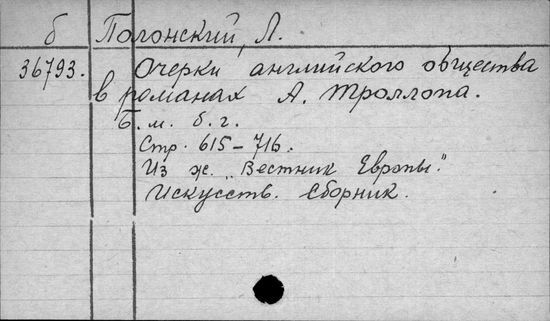 б Полонский, Л.
36793. Очерки английского общества
в романах А. Троллопа.
Б. м. б. г.
Стр. 615-716.
Из ж. "Вестник Европы."
Искусств. Сборник.